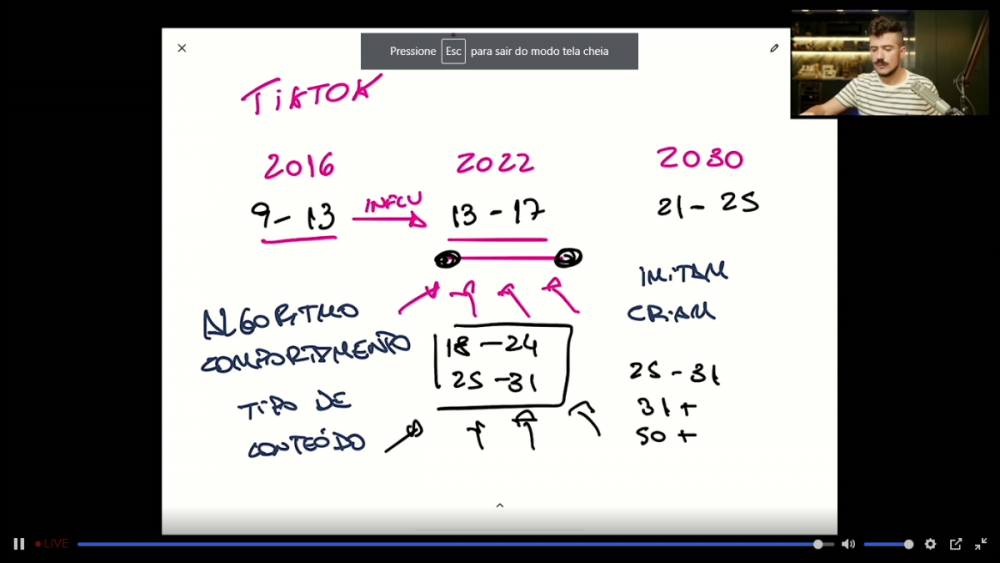 Pressione Esc para sair do modo tela cheia
TIKTOK
2016
2022
2030
9 - 13
INFLU
13 - 17
21 - 25
IMITAM
CRIAM
ALGORITMO
COMPORTAMENTO
TIPO DE
CONTEÚDO
18 - 24
25 - 31
25 - 31
31 +
50 +
LIVE